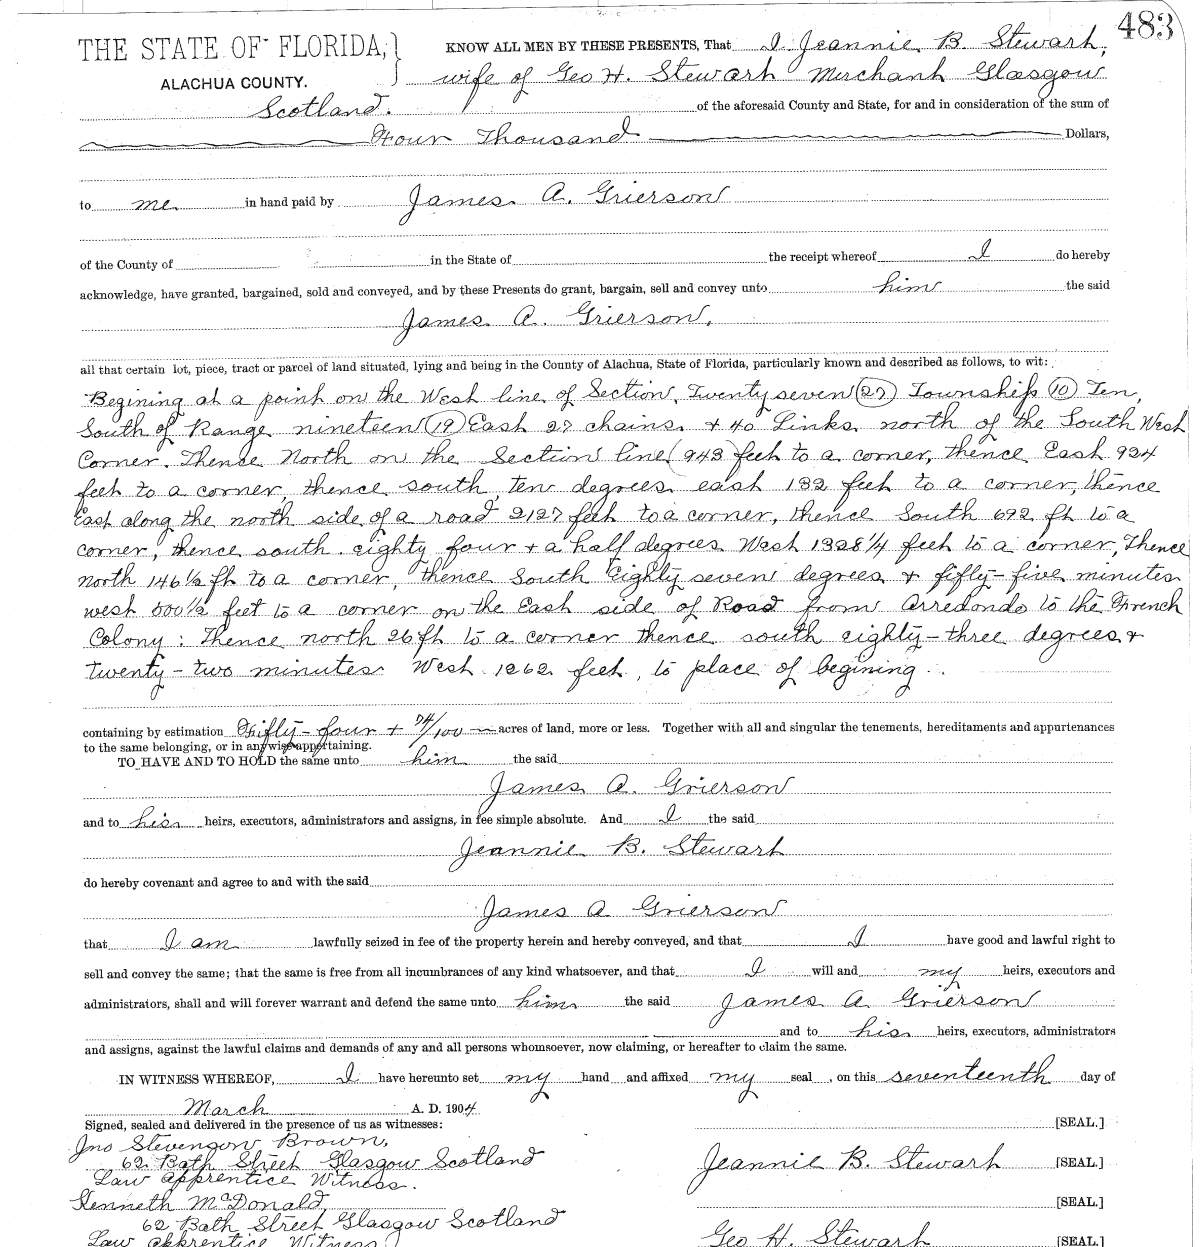 483
THE STATE OF FLORIDA,
ALACHUA COUNTY.
KNOW ALL MEN BY THESE PRESENTS, That I, Jeannie B. Stewart,
wife of Geo H. Stewart Merchant Glasgow
Scotland. of the aforesaid County and State, for and in consideration of the sum of
Four Thousand Dollars,
to me in hand paid by James A. Grierson
of the County of in the State of the receipt whereof I do hereby
acknowledge, have granted, bargained, sold and conveyed, and by these Presents do grant, bargain, sell and convey unto him the said
James A. Grierson,
all that certain lot, piece, tract or parcel of land situated, lying and being in the County of Alachua, State of Florida, particularly known and described as follows, to wit:
Begining at a point on the West line of Section, Twenty seven (27) Township (10) Ten,
South of Range nineteen (19) East 27 chains + 40 Links north of the South West
Corner. Thence North on the Section line (943) feet to a corner, thence East 924
feet to a corner, thence south ten degrees east 132 feet to a corner, thence
East along the north side of a road 2127 feet to a corner, thence South 692 ft to a
corner, thence south eighty four + a half degrees West 1328 1/4 feet to a corner, Thence
north 146 1/2 ft to a corner, thence South Eighty seven degrees & fifty-five minutes
west 500 1/2 feet to a corner on the East side of Road from Arredondo to the French
Colony: Thence north 26 ft to a corner thence south eighty-three degrees &
twenty-two minutes West 1262 feet, to place of begining.
containing by estimation Fifty-four + 74/100 acres of land, more or less. Together with all and singular the tenements, hereditaments and appurtenances
to the same belonging, or in anywise appertaining.
TO HAVE AND TO HOLD the same unto him the said
James A. Grierson
and to his heirs, executors, administrators and assigns, in fee simple absolute. And I the said
Jeannie B. Stewart
do hereby covenant and agree to and with the said
James A Grierson
that I am lawfully seized in fee of the property herein and hereby conveyed, and that I have good and lawful right to
sell and convey the same; that the same is free from all incumbrances of any kind whatsoever, and that I will and my heirs, executors and
administrators, shall and will forever warrant and defend the same unto him the said James A Grierson
and to his heirs, executors, administrators
and assigns, against the lawful claims and demands of any and all persons whomsoever, now claiming, or hereafter to claim the same.
IN WITNESS WHEREOF, I have hereunto set my hand and affixed my seal, on this seventeenth day of
March A. D. 1904
Signed, sealed and delivered in the presence of us as witnesses: [SEAL.]
Jno Stevenson Brown,
62 Bath Street Glasgow Scotland
Jeannie B. Stewart [SEAL.]
Law apprentice Witness.
Kenneth McDonald, [SEAL.]
62 Bath Street Glasgow Scotland
Law apprentice Witness) Geo H. Stewart [SEAL.]